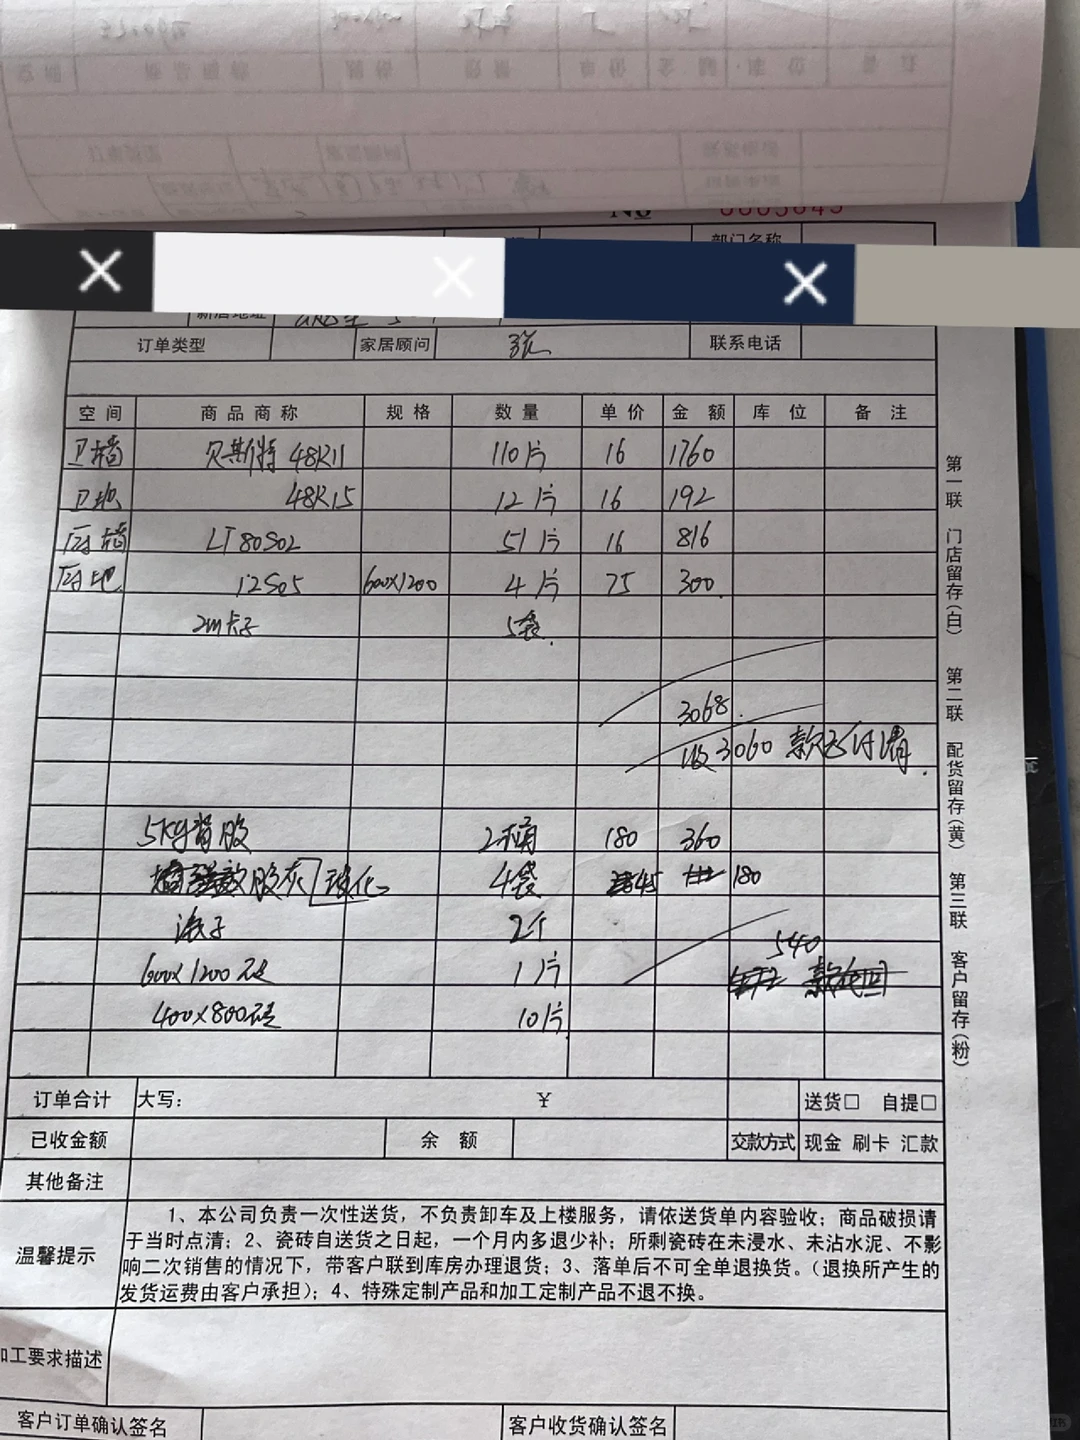 部门名称
订单类型 家居顾问 张 联系电话
空间 商品商称 规格 数量 单价 金额 库位 备注
卫墙 贝斯特 48K11 110片 16 1760
卫地 48K15 12片 16 192
厨墙 LT80S02 51片 16 816
厨地 12S05 600X1200 4片 75 300
2m卡子 5袋
3068
收3060 款已付清
5Kg背胶 2桶 180 360
胶灰 4袋 45 180
2个
540
600X1200砖 1片
400X800砖 10片
订单合计 大写: ¥ 送货□ 自提□
已收金额 余额 交款方式 现金 刷卡 汇款
其他备注
温馨提示
1、本公司负责一次性送货,不负责卸车及上楼服务,请依送货单内容验收;商品破损请
于当时点清;2、瓷砖自送货之日起,一个月内多退少补;所剩瓷砖在未浸水、未沾水泥、不影
响二次销售的情况下,带客户联到库房办理退货;3、落单后不可全单退换货。(退换所产生的
发货运费由客户承担);4、特殊定制产品和加工定制产品不退不换。
加工要求描述
客户订单确认签名 客户收货确认签名
第一联 门店留存(白) 第二联 配货留存(黄) 第三联 客户留存(粉)